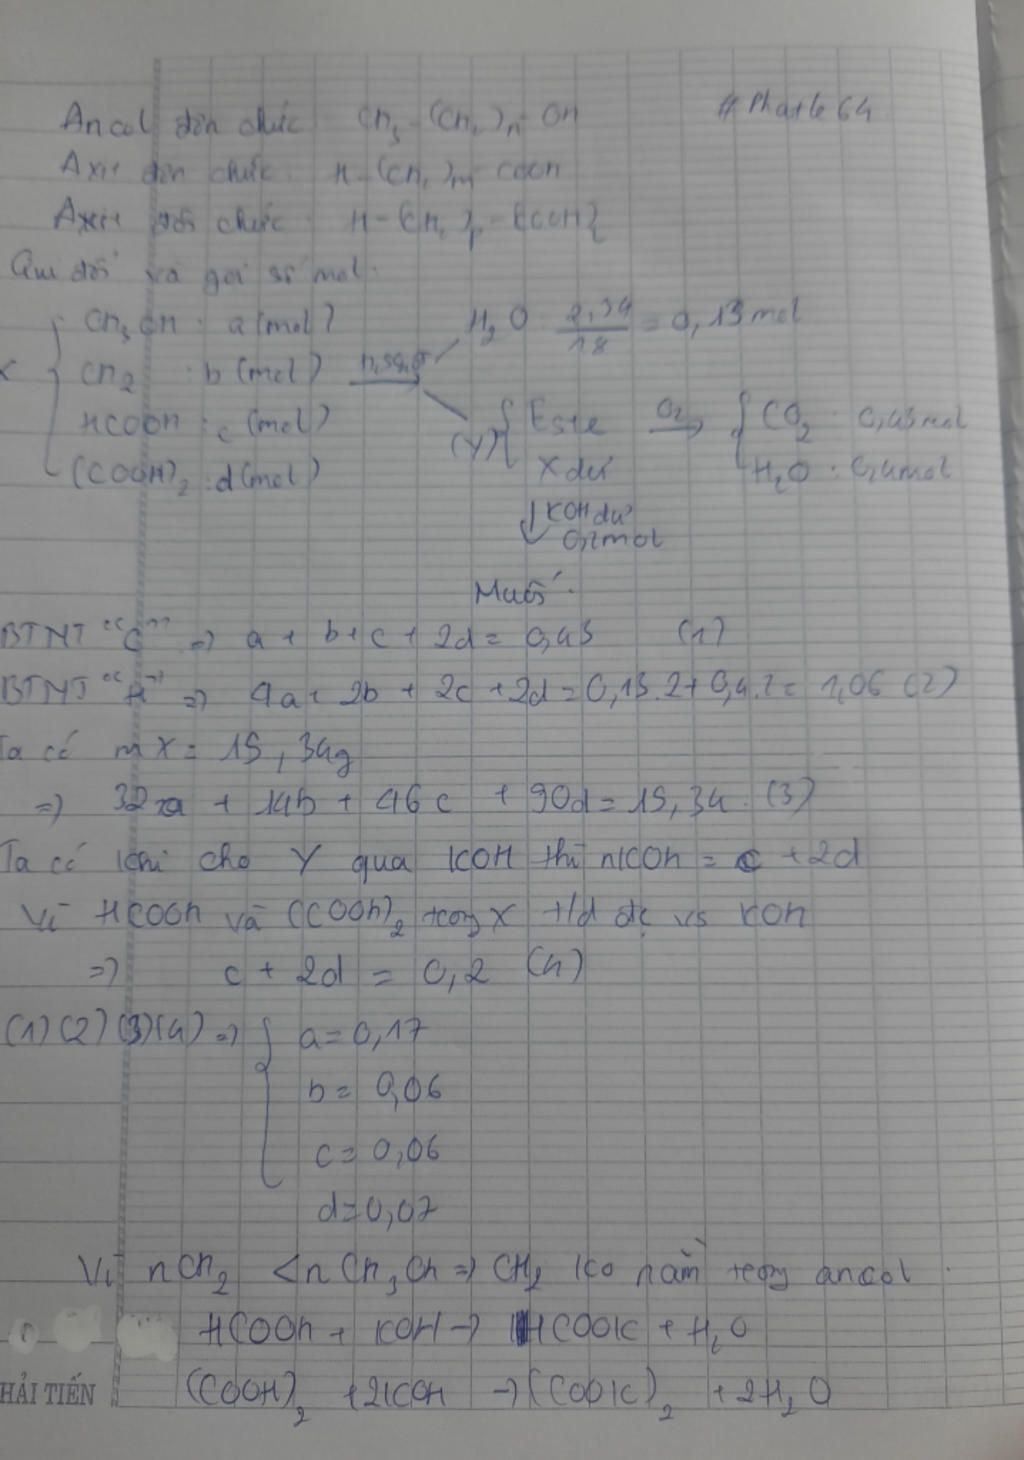 #Phatle64
Ancol đơn chức CH3-(CH2)n-OH
Axit đơn chức: H-(CH2)m-COOH
Axit đa chức: H-(CH2)p-(COOH)2
Qui đổi và gọi số mol.
X { CH3OH: a(mol)
CH2 : b(mol)
HCOOH: c(mol)
(COOH)2: d(mol)
H2SO4,đ
H2O 2,34/18 = 0,13mol
(Y) { Este
X dư
O2→ { CO2: 0,43mol
H2O: 0,4mol
↓ KOH dư
0,2mol
Muối.
BTNT "C" => a + b + c + 2d = 0,43 (1)
BTNT "H" => 4a + 2b + 2c + 2d = 0,13.2 + 0,4.2 = 1,06 (2)
Ta có mX = 15,34g
=> 32a + 14b + 46c + 90d = 15,34. (3)
Ta có khi cho Y qua KOH thì nKOH = c + 2d
Vì HCOOH và (COOH)2 trong X t/d đc vs KOH
=> c + 2d = 0,2 (4)
(1)(2)(3)(4) => { a = 0,17
b = 0,06
c = 0,06
d = 0,07
Vì nCH2 < nCH3OH => CH2 ko nằm trong ancol.
HCOOH + KOH → HCOOK + H2O
(COOH)2 + 2KOH → (COOK)2 + 2H2O
HẢI TIẾN